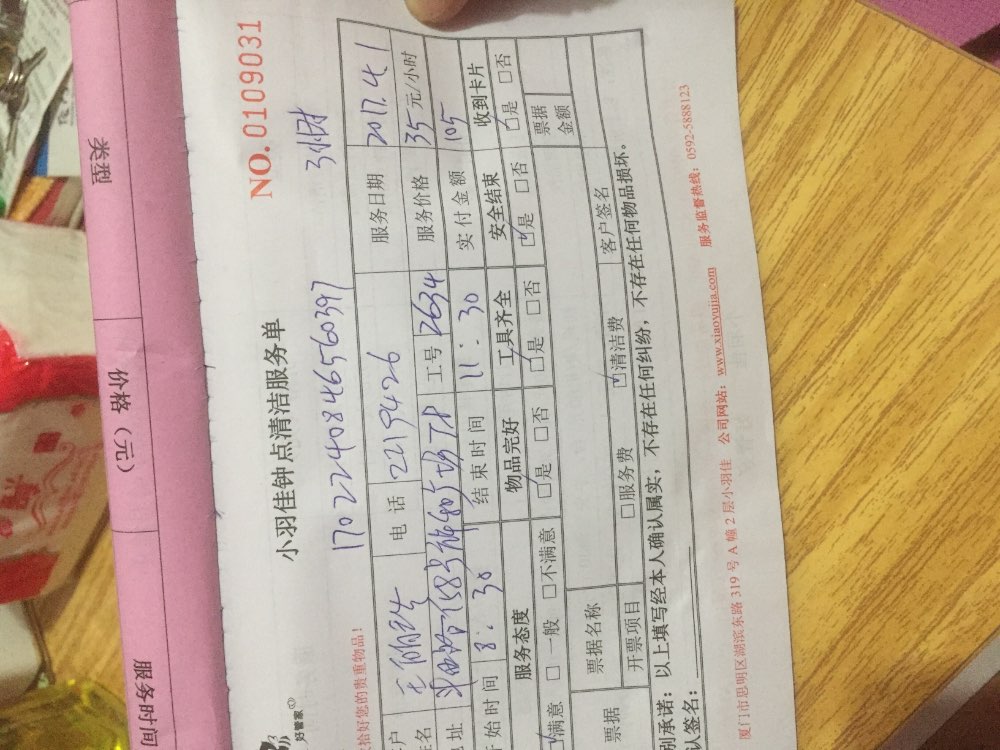 类型
价格（元）
服务时间
好管家
小羽佳钟点清洁服务单
NO. 01109031
拾好您的贵重物品！
17022440846560397
3小时
电话 2219426
服务日期 2017.4.1
工号 2634
服务价格 35 元/小时
始时间 8:30
结束时间 11:30
实付金额 105
服务态度
物品完好
工具齐全
安全结束
收到卡片
满意 □一般 □不满意
是 □否
是 □否
是 □否
是 □否
票据
票据名称
票据金额
开票项目
□服务费
清洁费
客户签名
别承诺：以上填写经本人确认属实，不存在任何纠纷，不存在任何物品损坏。
认签名：
厦门市思明区湖滨东路 319 号 A 幢 2 层小羽佳 公司网站：www.xiaoyujia.com 服务监督热线：0592-5888123